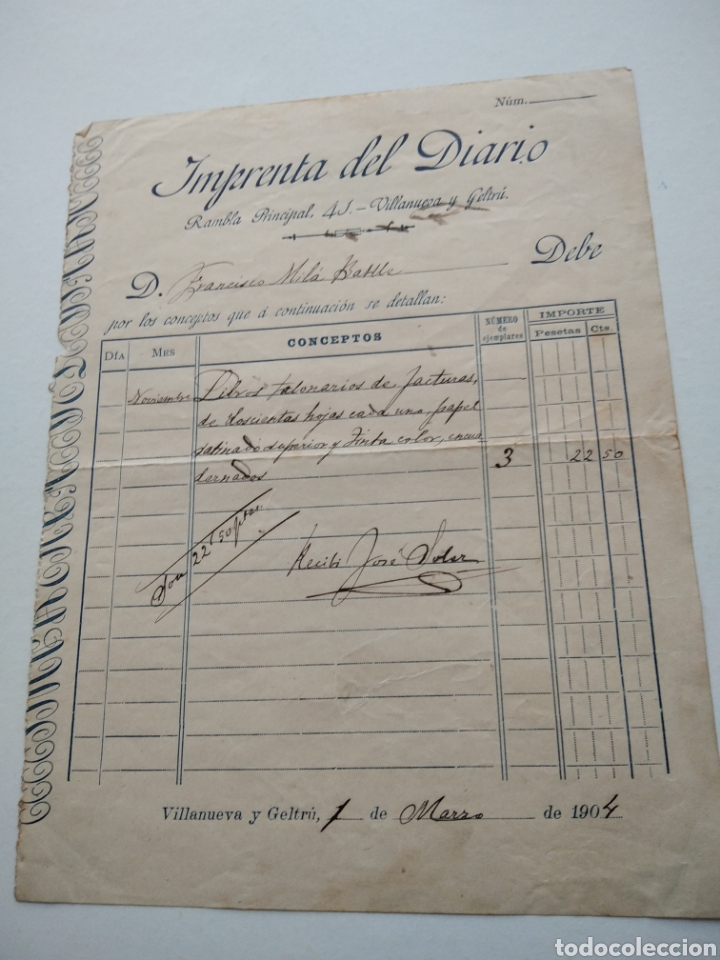 Núm.
Imprenta del Diario
Rambla Principal, 41.—Villanueva y Geltrú.
D. Francisco Milá Batlle Debe
por los conceptos que á continuación se detallan:
DÍA MES CONCEPTOS NÚMERO de ejemplares IMPORTE Pesetas Cts.
Noviembre Libros talonarios de facturas,
de doscientas hojas cada una, papel
satinado superior y tinta color, encua
dernados 3 22 50
Son 22'50 ptas.
Recibí José Soler
Villanueva y Geltrú, 1 de Marzo de 1904
todocoleccion